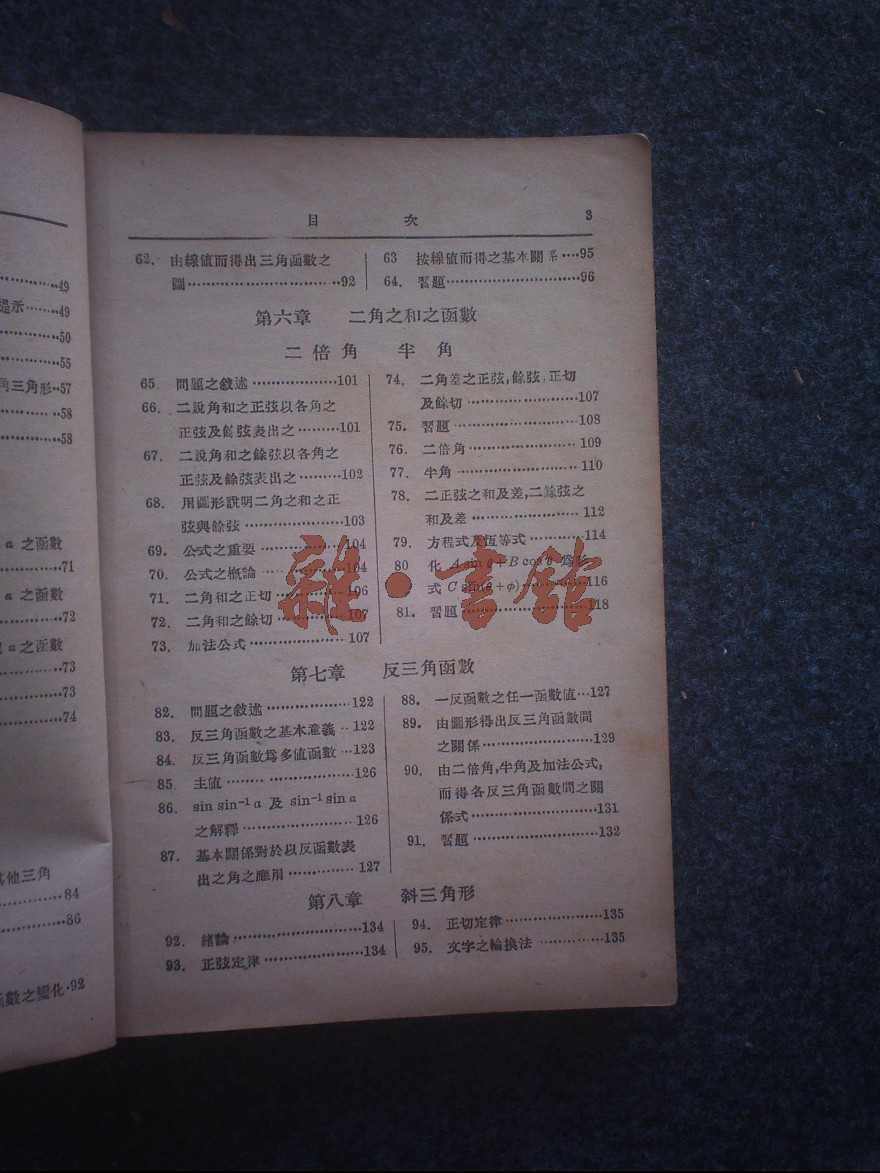 49
提示……49
50
55
角三角形…57
58
58
a 之函數
71
a 之函數
72
a 之函數
73
73
74
其他三角
84
86
函數之變化·92
目 次 3
62. 由線值而得出三角函數之
圖……92
63 按線值而得之基本關系…95
64. 習題……96
第六章 二角之和之函數
二倍角 半角
65 問題之敘述……101
66. 二說角和之正弦以各角之
正弦及餘弦表出之……101
67. 二說角和之餘弦以各角之
正弦及餘弦表出之……102
68. 用圖形說明二角之和之正
弦與餘弦……103
69. 公式之重要……104
70. 公式之概論……104
71. 二角和之正切……106
72. 二角和之餘切……107
73. 加法公式……107
74. 二角差之正弦,餘弦,正切
及餘切……107
75. 習題……108
76. 二倍角……109
77. 半角……110
78. 二正弦之和及差,二餘弦之
和及差……112
79. 方程式及恆等式……114
80 化 A sin θ + B cos θ 為形
式 C sin(θ + φ)……116
81. 習題……118
雜·書館
第七章 反三角函數
82. 問題之敘述……122
83. 反三角函數之基本意義…122
84. 反三角函數為多值函數…123
85. 主值……126
86. sin sin⁻¹ a 及 sin⁻¹ sin a
之解釋……126
87. 基本關係對於以反函數表
出之角之應用……127
88. 一反函數之任一函數值…127
89. 由圖形得出反三角函數間
之關係……129
90. 由二倍角,半角及加法公式,
而得各反三角函數間之關
係式……131
91. 習題……132
第八章 斜三角形
92. 緒論……134
93. 正弦定律……134
94. 正切定律……135
95. 文字之輪換法……135